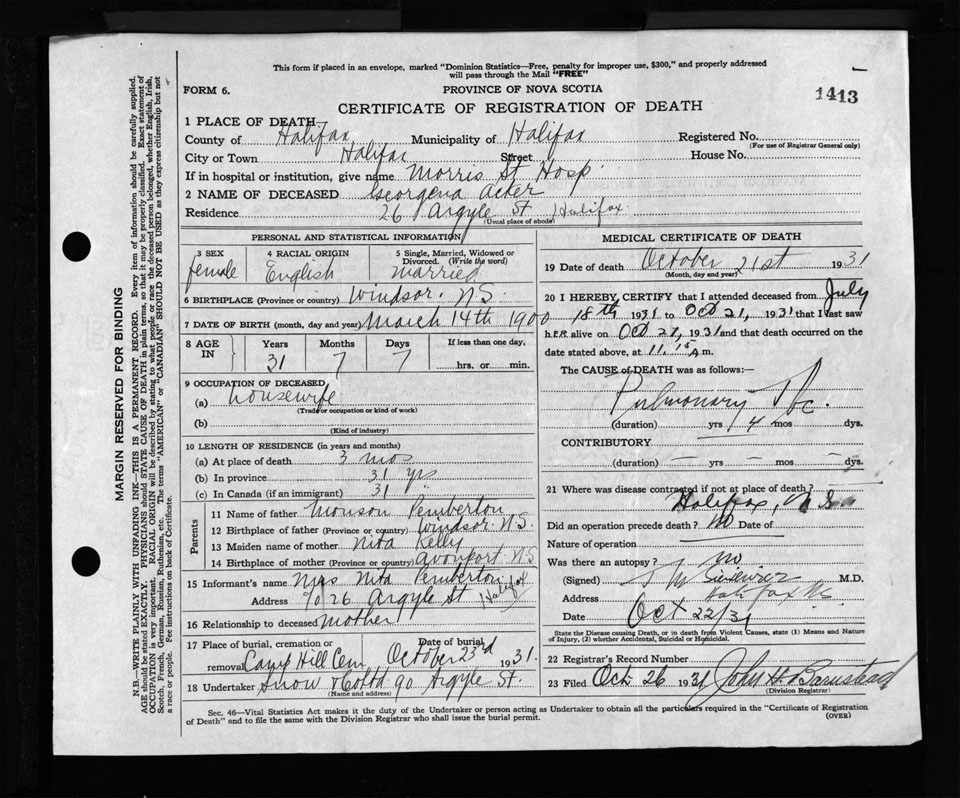 This form if placed in an envelope, marked "Dominion Statistics—Free, penalty for improper use, $300," and properly addressed
will pass through the Mail "FREE"
FORM 6.
PROVINCE OF NOVA SCOTIA
1413
CERTIFICATE OF REGISTRATION OF DEATH
1 PLACE OF DEATH
County of Halifax Municipality of Halifax Registered No.
(For use of Registrar General only)
City or Town Halifax Street House No.
If in hospital or institution, give name Morris St Hosp.
2 NAME OF DECEASED Georgena Acker
Residence 26 Argyle St Halifax
(Usual place of abode)
PERSONAL AND STATISTICAL INFORMATION
3 SEX 4 RACIAL ORIGIN 5 Single, Married, Widowed or
Divorced. (Write the word)
female English married
6 BIRTHPLACE (Province or country) Windsor. N.S.
7 DATE OF BIRTH (month, day and year) March 14th 1900
8 AGE IN Years Months Days If less than one day,
31 7 7 hrs. or min.
9 OCCUPATION OF DECEASED
(a) housewife
(Trade or occupation or kind of work)
(b)
(Kind of industry)
10 LENGTH OF RESIDENCE (in years and months)
(a) At place of death 3 mos
(b) In province 31 yrs
(c) In Canada (if an immigrant) 31
Parents
11 Name of father Monson Pemberton
12 Birthplace of father (Province or country) Windsor N.S.
13 Maiden name of mother Nita Kelly
14 Birthplace of mother (Province or country) Avonport N S
15 Informant's name Mrs Nita Pemberton
Address c/o 26 Argyle St Halifax
16 Relationship to deceased mother
17 Place of burial, cremation or Date of burial
removal Camp Hill Cem October 23rd 1931.
18 Undertaker Snow & Co Ltd 90 Argyle St.
(Name and address)
MEDICAL CERTIFICATE OF DEATH
19 Date of death October 21st 1931
(Month, day and year)
20 I HEREBY CERTIFY that I attended deceased from July
18th 1931 to Oct 21, 1931 that I last saw
h.ER alive on Oct 21, 1931 and that death occurred on
date stated above, at 11.15 A m.
The CAUSE of DEATH was as follows:
Pulmonary Tbc.
(duration) yrs 4 mos dys.
CONTRIBUTORY
(duration) — yrs — mos — dys.
21 Where was disease contracted if not at place of death?
Halifax, N Sco
Did an operation precede death? no Date of
Nature of operation
Was there an autopsy? no
(Signed) M.D.
Address Halifax NS.
Date Oct 22/31
State the Disease causing Death, or in death from Violent Causes, state (1) Means and Nature
of Injury, (2) whether Accidental, Suicidal or Homicidal.
22 Registrar's Record Number
23 Filed Oct 26 1931 John H. Barnstead
(Division Registrar)
Sec. 46—Vital Statistics Act makes it the duty of the Undertaker or person acting as Undertaker to obtain all the particulars required in the "Certificate of Registration
of Death" and to file the same with the Division Registrar who shall issue the burial permit.
(OVER)
MARGIN RESERVED FOR BINDING
N.B.—WRITE PLAINLY WITH UNFADING INK—THIS IS A PERMANENT RECORD. Every item of information should be carefully supplied.
AGE should be stated EXACTLY. PHYSICIANS should STATE CAUSE OF DEATH in plain terms, so that it may be properly classified. Exact statement of
OCCUPATION is very important. RACIAL ORIGIN will be described by stating to what people or race the deceased person belonged, whether English, Irish,
Scotch, French, German, Russian, Ruthenian, etc. The terms "AMERICAN" or "CANADIAN" SHOULD NOT BE USED as they express citizenship but not
a race or people. See instructions on back of Certificate.